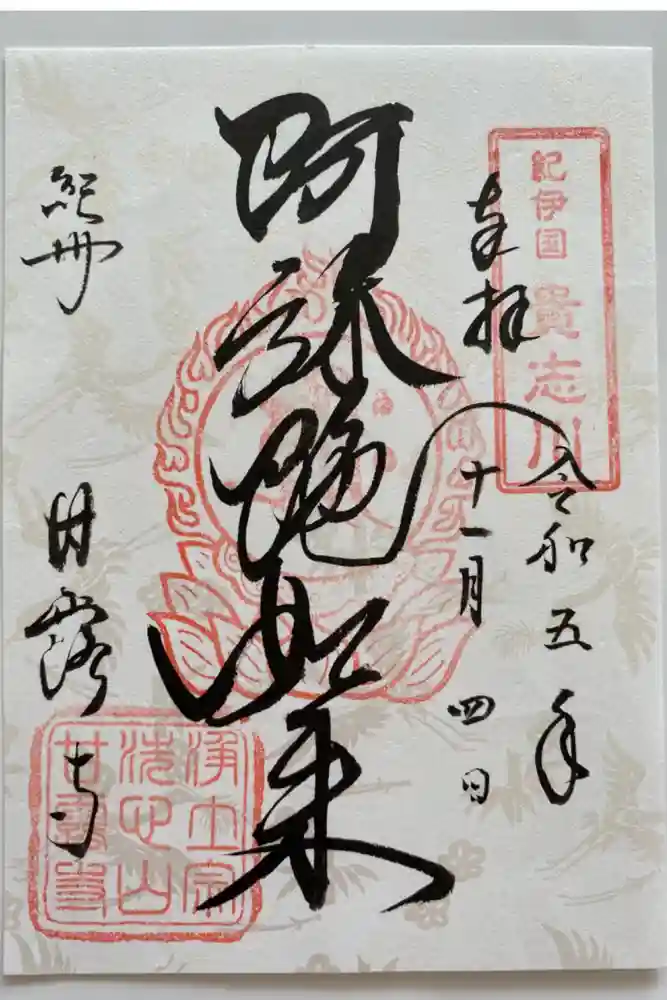 紀伊国 貴志川
奉拝
令和五年
十一月四日
阿弥陀如来
紀州 甘露寺
浄土宗
洗心山
甘露寺